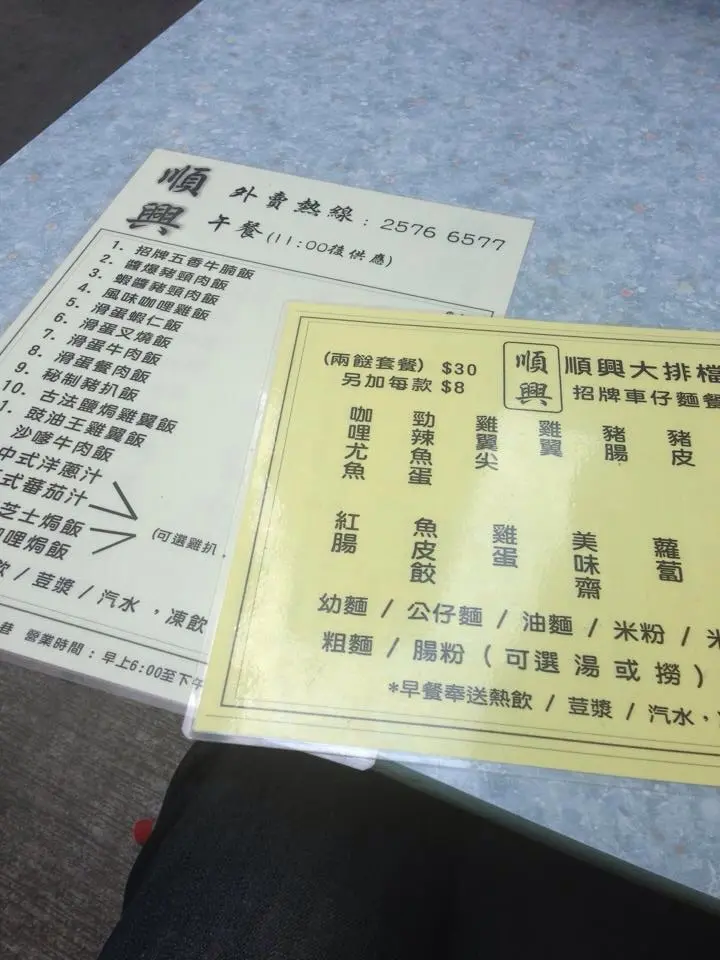 順興
外賣熱線：2576 6577
午餐(11:00後供應)
1. 招牌五香牛腩飯
2. 醬爆豬頸肉飯
3. 蝦醬豬頸肉飯
4. 風味咖哩雞飯
5. 滑蛋蝦仁飯
6. 滑蛋叉燒飯
7. 滑蛋牛肉飯
8. 滑蛋餐肉飯
9. 秘制豬扒飯
10. 古法鹽焗雞翼飯
1. 豉油王雞翼飯
沙嗲牛肉飯
中式洋蔥汁
式蕃茄汁
芝士焗飯
哩焗飯
(可選雞扒
飲 / 荳漿 / 汽水，凍飲
巷 營業時間：早上6:00至下午
(兩餸套餐) $30
另加每款 $8
順興
順興大排檔
招牌車仔麵餐
咖哩尤魚
勁辣魚蛋
雞翼尖
雞翼
豬腸
豬皮
紅腸
魚皮餃
雞蛋
美味齋
蘿蔔
幼麵 / 公仔麵 / 油麵 / 米粉 / 米
粗麵 / 腸粉 ( 可選 湯 或 撈 )
*早餐奉送熱飲 / 荳漿 / 汽水，